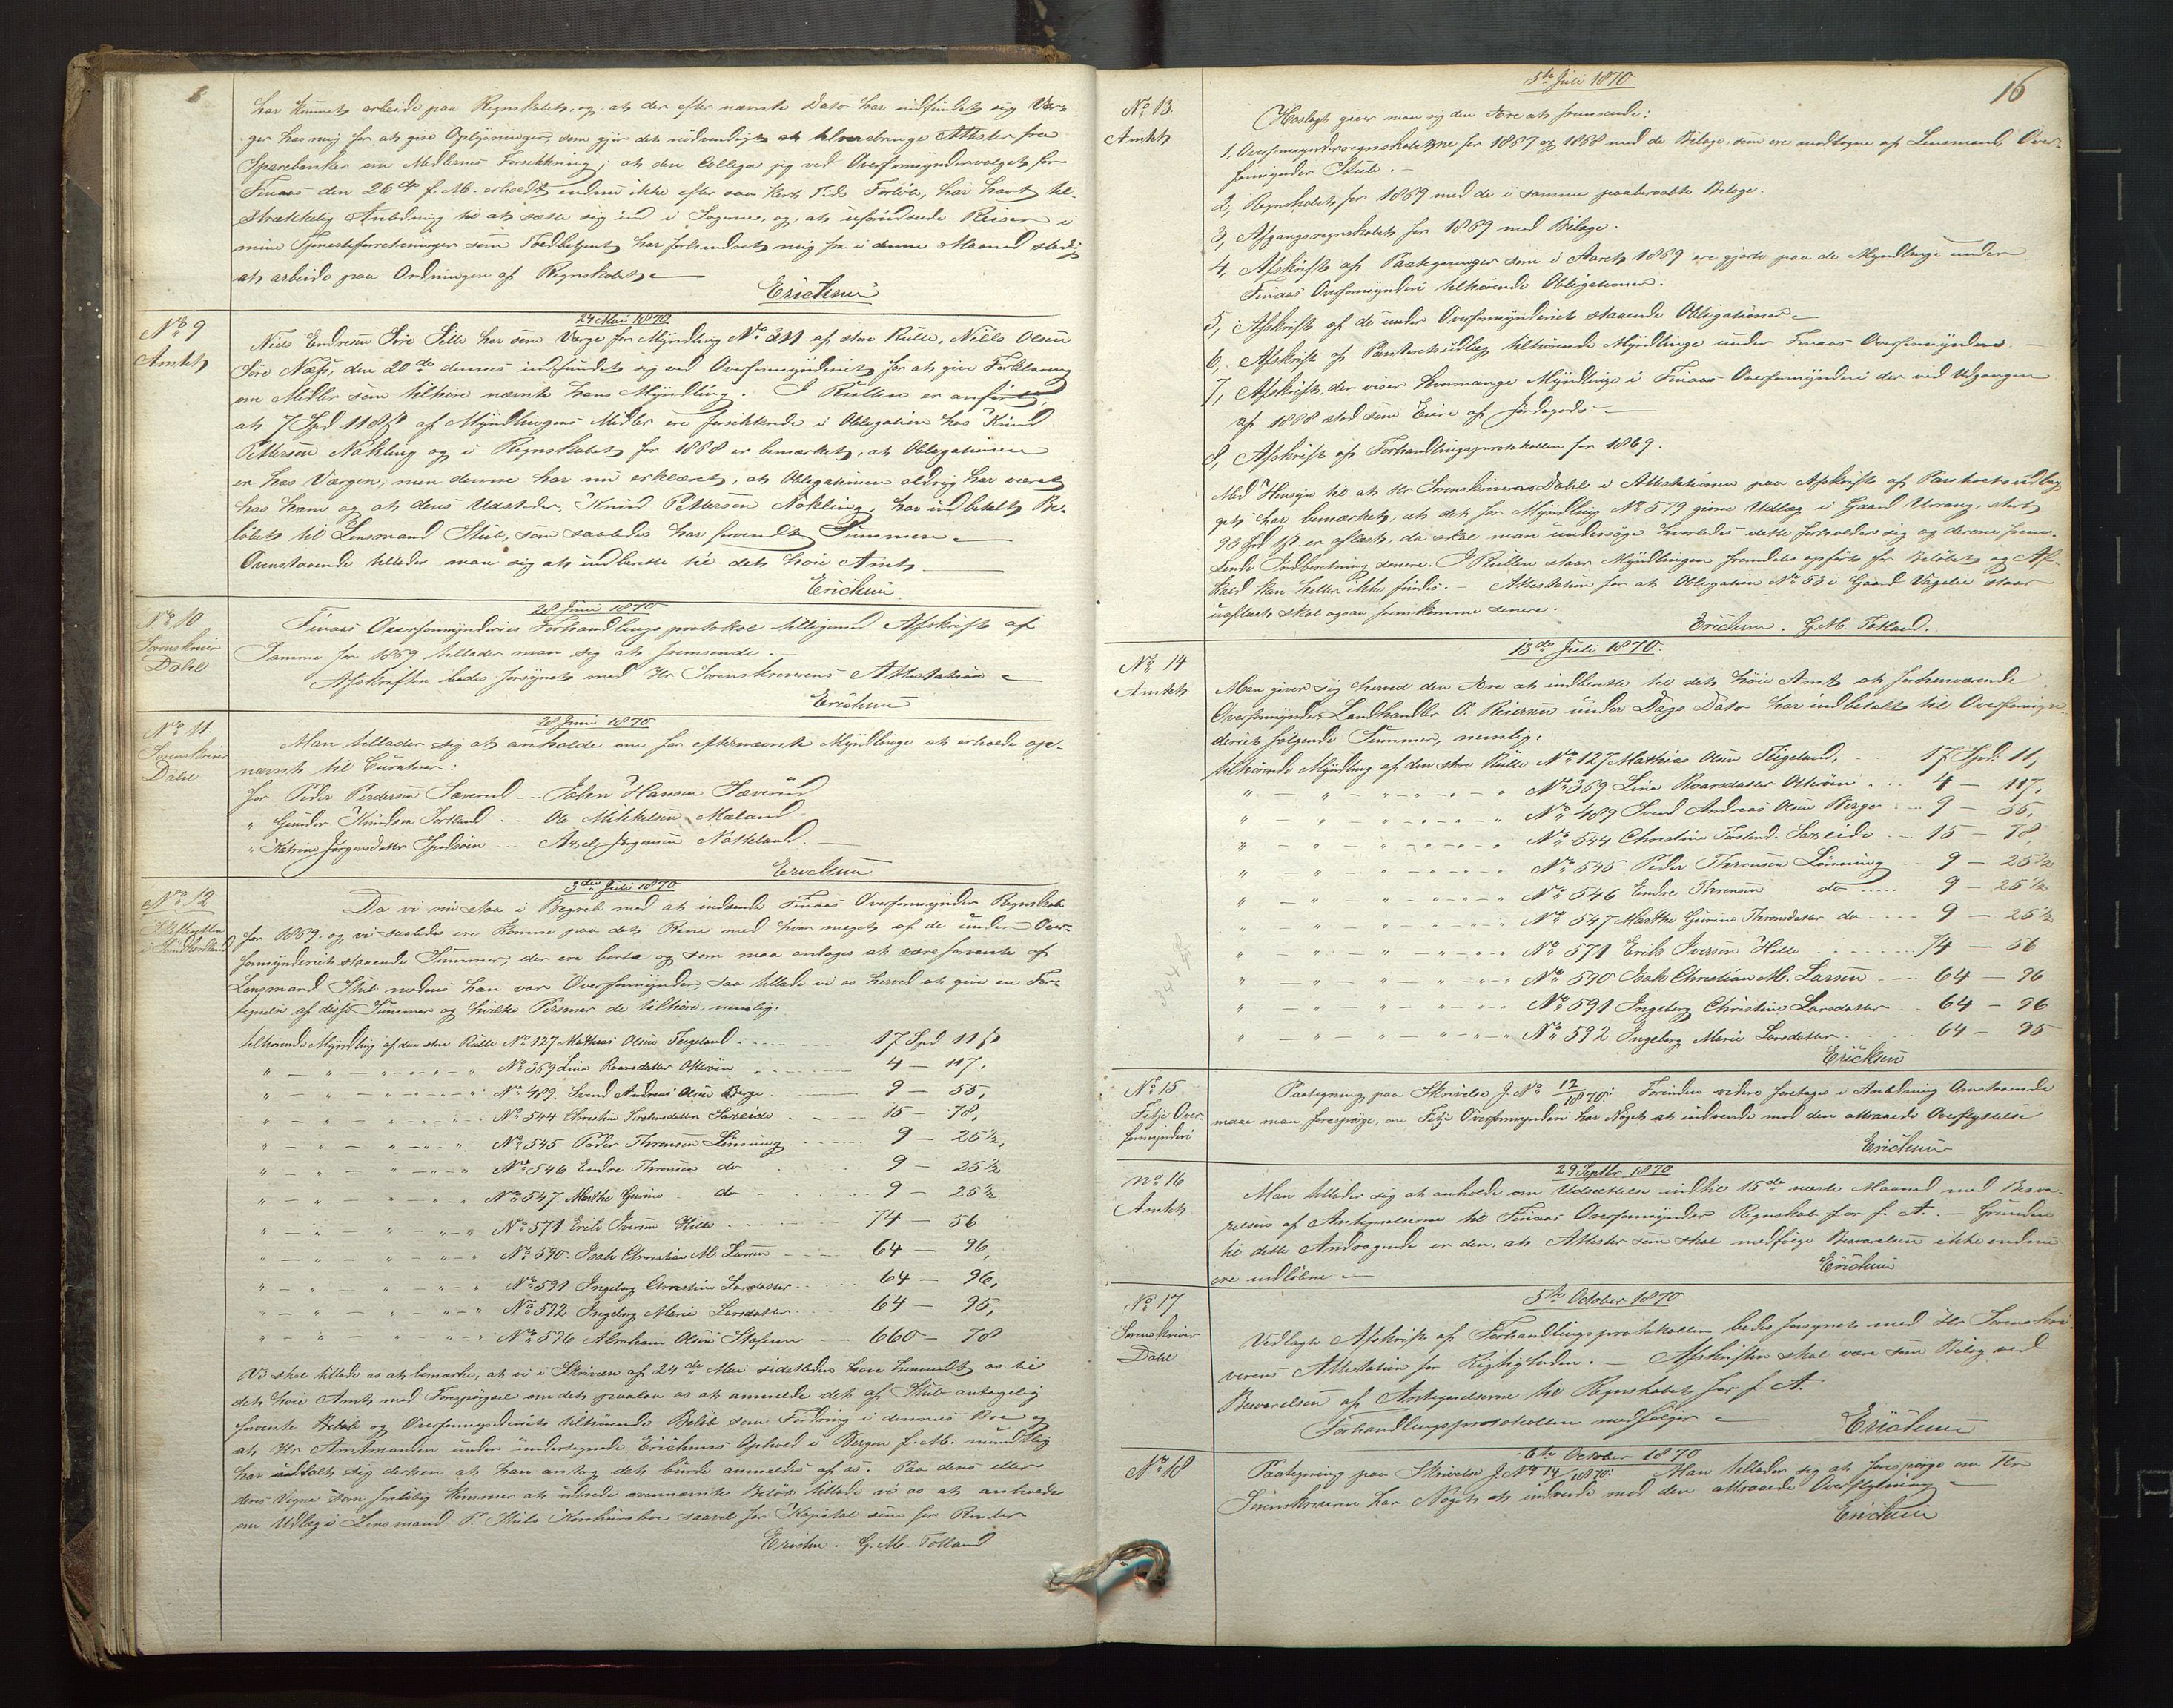 har kunnet arbeide paa Regnskabet, og, at der efter nævnte Dato har indfundet sig Vær-
ger hos mig for at give Oplysninger, som gjør det nødvendigt at tilveiebringe Attester fra
Sparebanker om Midlernes Forsikkring, at den Collega jeg ved Overformyndervalget for
Finaas den 26de f. M. erholdt endnu ikke efter saa kort Tids Forløb, har havt til-
strækkelig Anledning til at sætte sig ind i Sagerne, og, at uforudseede Reiser i
mine Tjenesteforretninger som Toldbetjent har forhindret mig fra i denne Maaned stadig
at arbeide paa Ordningen af Regnskabet.
Erichsen
No 9
Amtet
24 Mai 1870
Niels Endresen Søre Selle har som Værge for Myndling No 311 af store Rulle, Niels Olsen
Søre Næss, den 20de dennes indfundet sig ved Overformynderiet for at give Forklaring
om Midler som tilhøre nævnte hans Myndling. I Rullen er anført,
at 7 Spd 118 ß af Myndlingens Midler ere forsikkrede i Obligation hos Knud
Pettersen Nøkling og i Regnskabet for 1868 er bemærket, at Obligationen
er hos Værgen, men denne har nu erklæret, at Obligationen aldrig har været
hos ham og at dens Udsteder, Knud Pettersen Nøkling, har indbetalt Be-
løbet til Lensmand Stub, som saaledes har forvendt Summen.
Ovenstaaende tillader man sig at indberette til det høie Amt.
Erichsen
No 10
Sorenskriver
Dahl
28 Juni 1870
Finaas Overformynderies Forhandlingsprotokol tilligemed Afskrift af
Samme for 1869 tillader man sig at fremsende.
Afskriften bedes forsynet med Hr Sorenskriverens Attestation
Erichsen
No 11.
Sorenskriver
Dahl
28 Juni 1870
Man tillader sig at anholde om for efternævnte Myndlinge at erholde op-
nævnt til Curatorer:
for Peder Pedersen Sæverud --- John Hansen Sæverud
" Gunder Knudsen Sortland --- Ole Mikkelsen Mæland
" Katrine Jørgensdatter --- Axel Jørgensen Nakkeland.
Erichsen
No 12
Skifteretten
i Søndhordland
3die Juli 1870
Da vi nu staa i Begreb med at indsende Finaas Overformynder Regnskab
for 1869 og vi saaledes ere komne paa det Rene med hvor meget af de under Over-
formynderiet staaende Summer, der ere borte og som maa antages at være forvente af
Lensmand Stub medens han var Overformynder, saa tillade vi os herved at give en For-
tegnelse af disse Summer og hvilke Personer de tilhøre, nemlig:
tilhørende Myndling af den store Rulle No 127 Mathias Olsen Teigeland --- 17 Spd 11 ß
" - " - " - No 369 Lina Roarsdatter --- 4 - 117,
" - " - " - No 489 Svend Andreas Olsen Berge --- 9 - 55,
" - " - " - No 544 Christine --- 15 - 78,
" - " - " - No 545 Peder Thronsen Lønning --- 9 - 25½,
" - " - " - No 546 Endre Thronsen do --- 9 - 25½
" - " - " - No 547. Marthe Gurine do --- 9 - 25½
" - " - " - No 571 Erik Iversen Hille --- 74 - 56
" - " - " - No 590 Isak Christian M. Larsen --- 64 - 96,
" - " - " - No 591 Ingeborg Christine Larsdatter --- 64 - 96,
" - " - " - No 592 Ingeborg Marie Larsdatter --- 64 - 95,
" - " - " - No 596 Abraham Olsen --- 660 - 78
Vi skal tillade os at bemærke, at vi i Skrivelse af 24de Mai sidstleden have henvendt os til
det høie Amt med Forespørgsel om det paalaa os at anmelde det af Stub antagelig
forvente Beløb og Overformynderiet tilhørende Beløb som Fordring i dennes Bo og
at Hr Amtmanden under undertegnede Erichsens Ophold i Bergen f. M. mundtlig
har udtalt sig derhen at han antog det burde anmeldes af os. Paa dens eller
deres Vegne som foreløbig kommer at udrede ovennævnte Beløb tillade vi os at anholde
om Udlæg i Lensmand P. Stubs Konkursbo saavel for Kapital som for Renter
Erichsen. G. M. Tolland
16
No 13.
Amtet
5te Juli 1870
Hoslagt giver man sig den Ære at fremsende:
1, Overformynderregnskaberne for 1867 og 1868 med de Bilage, som ere modtagne af Lensmand, Over-
formynder Stub.
2, Regnskabet for 1869 med de i samme paaberaabte Bilage.
3, Afgangsregnskabet for 1869 med Bilage.
4, Afskrift af Paategninger som i Aaret 1869 ere gjorte paa de Myndlinge under
Finaas Overformynderi tilhørende Obligationer.
5, Afskrift af de under Overformynderiet staaende Obligationer
6, Afskrift af Panteretsudlæg tilhørende Myndlinge under Finaas Overformynderi.
7, Afskrift, der viser hvormange Myndlinge i Finaas Overformynderi der ved Udgangen
af 1868 stod som Eiere af Jordegods
8, Afskrift af Forhandlingsprotokollen for 1869.
Med Hensyn til at Hr Sorenskriver Dahl i Attestationen paa Afskrift af Panteretsudlæg
get har bemærket, at det for Myndling No 579 givne Udlæg i Gaard stort
93 Spd er aflæst, da skal man undersøge hvorledes dette forholder sig og derom frem-
sende Indberetning senere. I Rullen staar Myndlingen fremdeles opført for Beløbet og Af-
kald kan heller ikke findes. - Attestation for at Obligation No 53 i Gaard staar
uaflæst skal ogsaa fremkomme senere.
Erichsen. G. M. Tolland.
No 14
Amtet
13de Juli 1870.
Man giver sig herved den Ære at indberette til det høie Amt at forhenværende
Overformynder Landhandler O. Reiersen under Dags Dato har indbetalt til Overformyn-
deriet følgende Summer, nemlig:
tilhørende Myndling af den store Rulle No 127 Mathias Olsen Teigeland, --- 17 Spd: 11,
" - " - " - No 369 Lina Roarsdatter --- 4 - 117,
" - " - " - No 489 Svend Andreas Olsen Berge --- 9 - 55,
" - " - " - No 544 Christine --- 15 - 78,
" - " - " - No 545 Peder Thronsen Lønning --- 9 - 25½
" - " - " - No 546 Endre Thronsen do --- 9 - 25½
" - " - " - No 547 Marthe Gurine Thronsdatter do --- 9 - 25½
" - " - " - No 571 Erik Iversen Hille --- 74 - 56
" - " - " - No 590 Isak Christian M. Larsen --- 64 - 96
" - " - " - No 591 Ingeborg Christine Larsdatter --- 64 - 96
" - " - " - No 592 Ingeborg Marie Larsdatter --- 64 - 95
Erichsen
No 15
Fitje Over-
formynderi
Paategning paa Skrivelse J. No 12/1870: Forinden videre foretages i Anledning Omstaaende
maa man forespørge, om Fitje Overformynderi har Noget at indvende mod den attraaede Overflyttelse
Erichsen
No 16
Amtet
29 Septbr 1870
Man tillader sig at anholde om Udsættelse indtil 15de næste Maaned med Besva-
relsen af Antegnelserne til Finaas Overformynder Regnskab for f. A. - Grunden
til dette Andragende er den, at Attester som skal medfølge Besvarelsen ikke endnu
ere indløbne
Erichsen
No 17
Sorenskriver
Dahl
5te October 1870
Vedlagte Afskrift af Forhandlingsprotokollen bedes forsynet med Hr Sorenskri-
verens Attestation for Rigtigheden. - Afskriften skal være som Bilag ved
Besvarelsen af Antegnelserne til Regnskabet for f. A.
Forhandlingsprotokollen medfølger
Erichsen
No 18
6te October 1870
Paategning paa Skrivelse J. No 14/1870: Man tillader sig at forespørge om Hr
Sorenskriveren har Noget at indvende mod den attraaede Overflytning
Erichsen